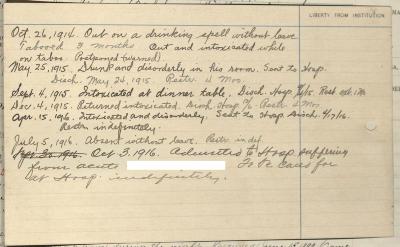 LIBERTY FROM INSTITUTION
Oct. 26, 1914. Out on a drinking spell without leave
Tabooed 3 months Out and intoxicated while
on taboo. Postponed (warned)
May 25, 1915. Drunk and disorderly in his room. Sent to Hosp.
Disch. May 24, 1915. Restr. 4 Mos.
Sept. 4, 1915. Intoxicated at dinner table. Disch. Hosp.
Nov. 4, 1915. Returned intoxicated. Disch Hosp Restr 4 Mos
Apr. 15, 1916. Intoxicated and disorderly. Sent to Hosp Disch. 4/17/16.
Restr. indefinitely.
July 5, 1916. Absent without leave. Restr indef.
Oct 3, 1916. Admitted to Hosp suffering
from acute To be cared for
at Hosp. indefinitely.